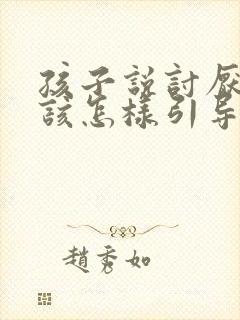 孩子說討厭
該怎樣引导
趙秀如